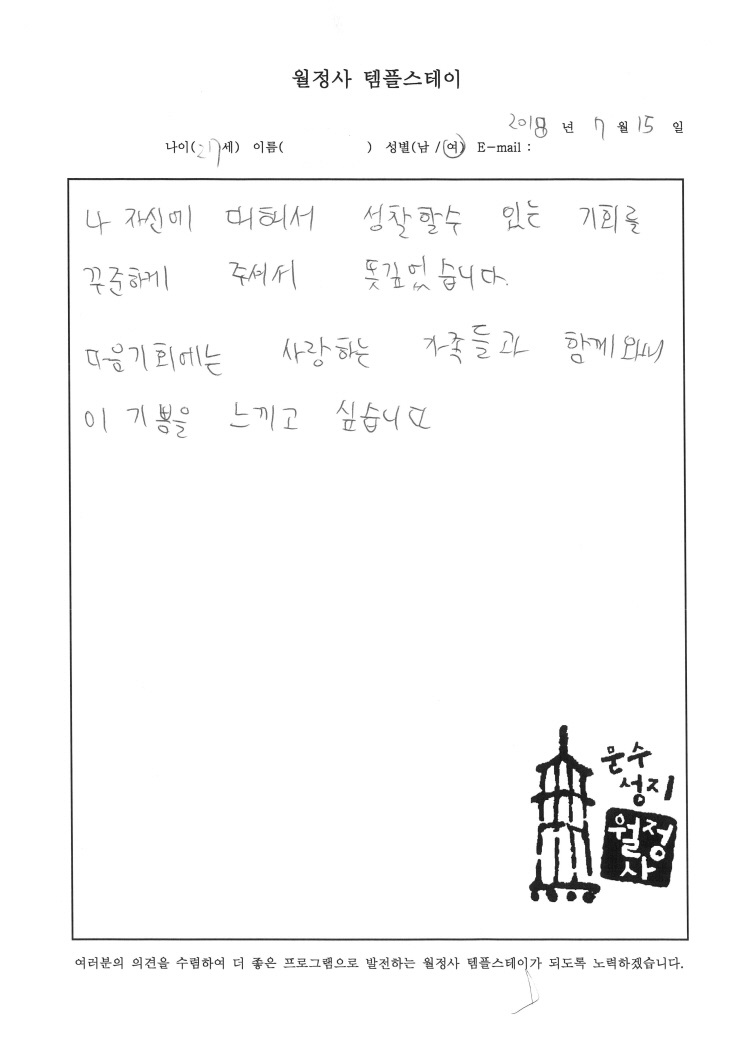 월정사 템플스테이
2018 년 7 월 15 일
나이(27세) 이름( ) 성별(남 / 여) E-mail :
나 자신에 대해서 성찰할수 있는 기회를
꾸준하게 주셔서 뜻깊었습니다.
다음기회에는 사랑하는 가족들과 함께와서
이 기쁨을 느끼고 싶습니다
문수
성지
월정
사
여러분의 의견을 수렴하여 더 좋은 프로그램으로 발전하는 월정사 템플스테이가 되도록 노력하겠습니다.